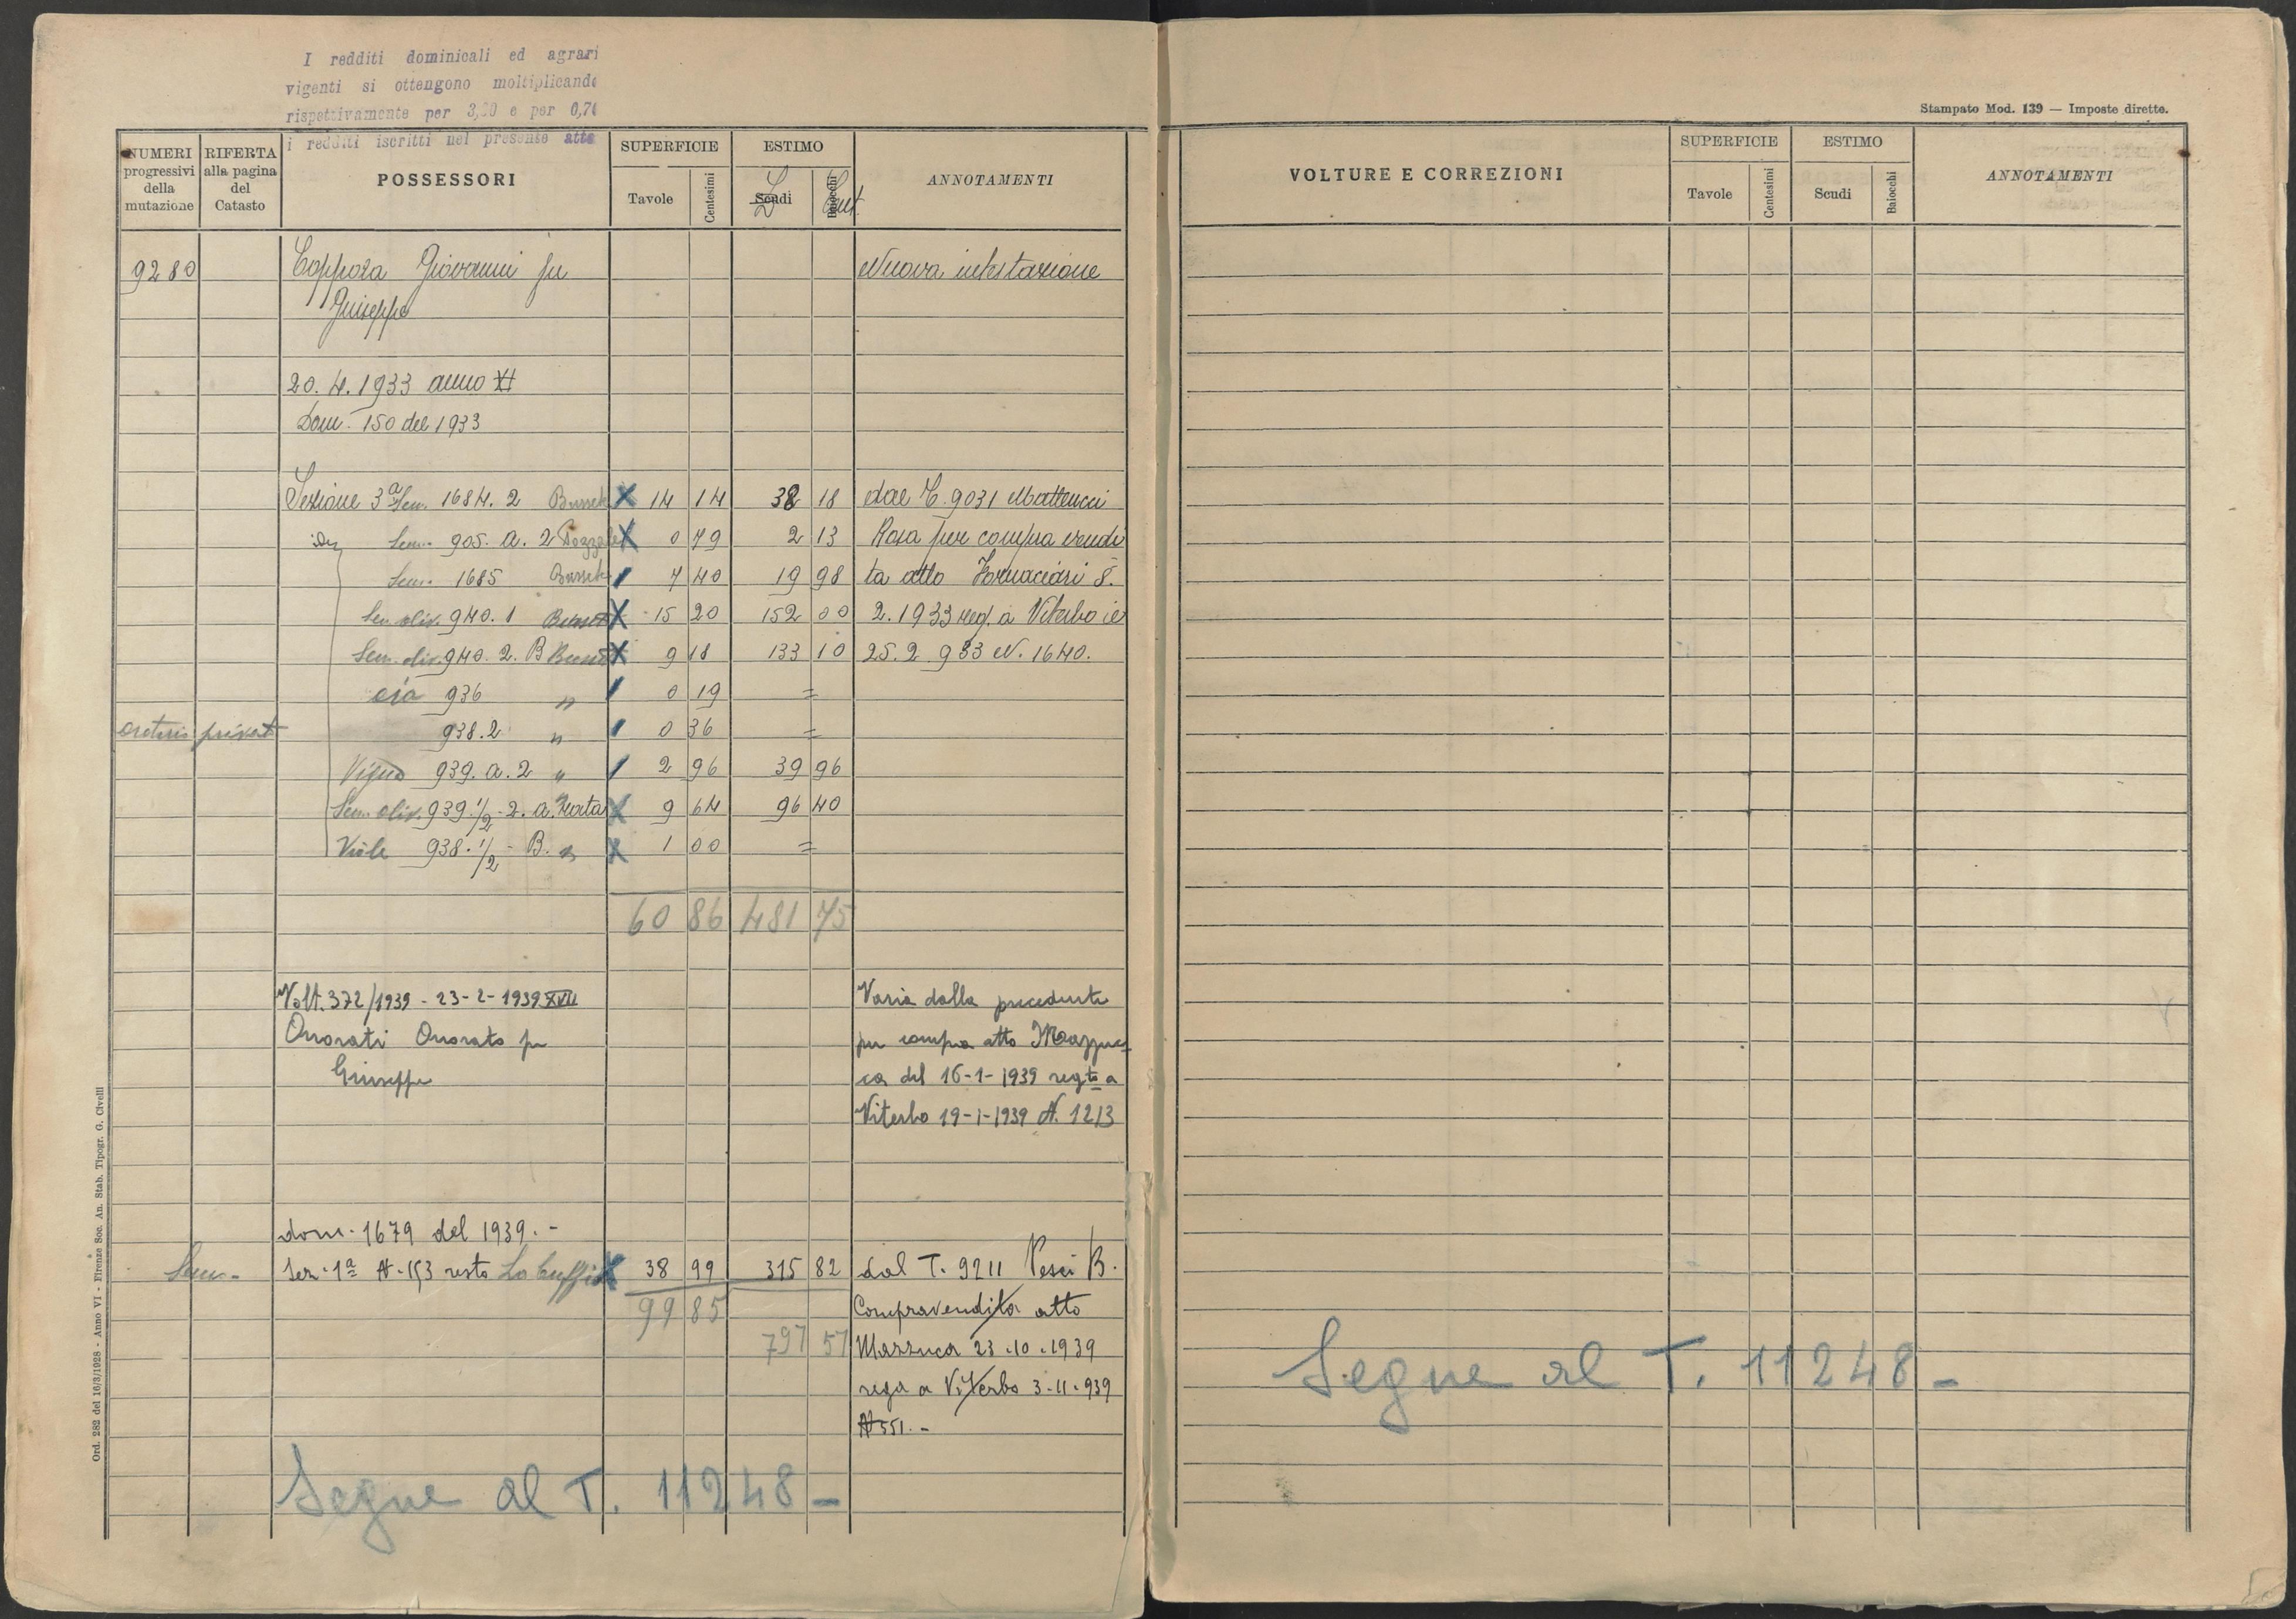 I redditi dominicali ed agrari
vigenti si ottengono moltiplicando
rispettivamente per 3,20 e per 0,70
i redditi iscritti nel presente atto
NUMERI progressivi della mutazione
RIFERTA alla pagina del Catasto
POSSESSORI
SUPERFICIE
Tavole
Centesimi
ESTIMO
Scudi
Baiocchi
L
Cent.
ANNOTAMENTI
9280 Coppola Giovanni fu Nuova intestazione
Giuseppe
20. 4. 1933 anno XI
Dom. 150 del 1933
Sezione 3a Sem. 1684. 2 X 14 14 38 18 dal T. 9031 Matteucci
idem Sem. 905. a. 2 X 0 79 2 13 Rosa per compra vendi
Sem. 1685 7 40 19 98 ta atto Fornaciari 8.
Sem. oliv. 940. 1 X 15 20 152 00 2. 1933 reg. a Viterbo il
Sem. oliv. 940. 2. B X 9 18 133 10 25. 2. 933 N. 1640.
aia 936 " 0 19 =
oratorio privat 938.2 " 0 36 =
Vigna 939. a. 2 " 2 96 39 96
Sem. oliv. 939 1/2 - 2. a. X 9 64 96 40
Viole 938. 1/2 - B. " X 1 00 =
60 86 481 75
Volt. 372/1939 - 23-2-1939 XVII Varia dalla precedente
Onorati Onorato fu per compra atto Mazzuc-
Giuseppe ca del 16-1-1939 regto a
Viterbo 19-1-1939 N. 1213
dom. 1679 del 1939.-
Sem. Sez. 1a N. 153 resto X 38 99 315 82 dal T. 9211 Pesci B.
99 85 Compravendita atto
797 57 Mazzuca 23.10.1939
rega a Viterbo 3-11-939
N 551.-
Segue al T. 11248 -
Ord. 282 del 16/3/1928 - Anno VI - Firenze Soc. An. Stab. Tipogr. G. Civelli
Stampato Mod. 139 — Imposte dirette.
VOLTURE E CORREZIONI
SUPERFICIE
Tavole
Centesimi
ESTIMO
Scudi
Baiocchi
ANNOTAMENTI
Segue al T. 11248 -